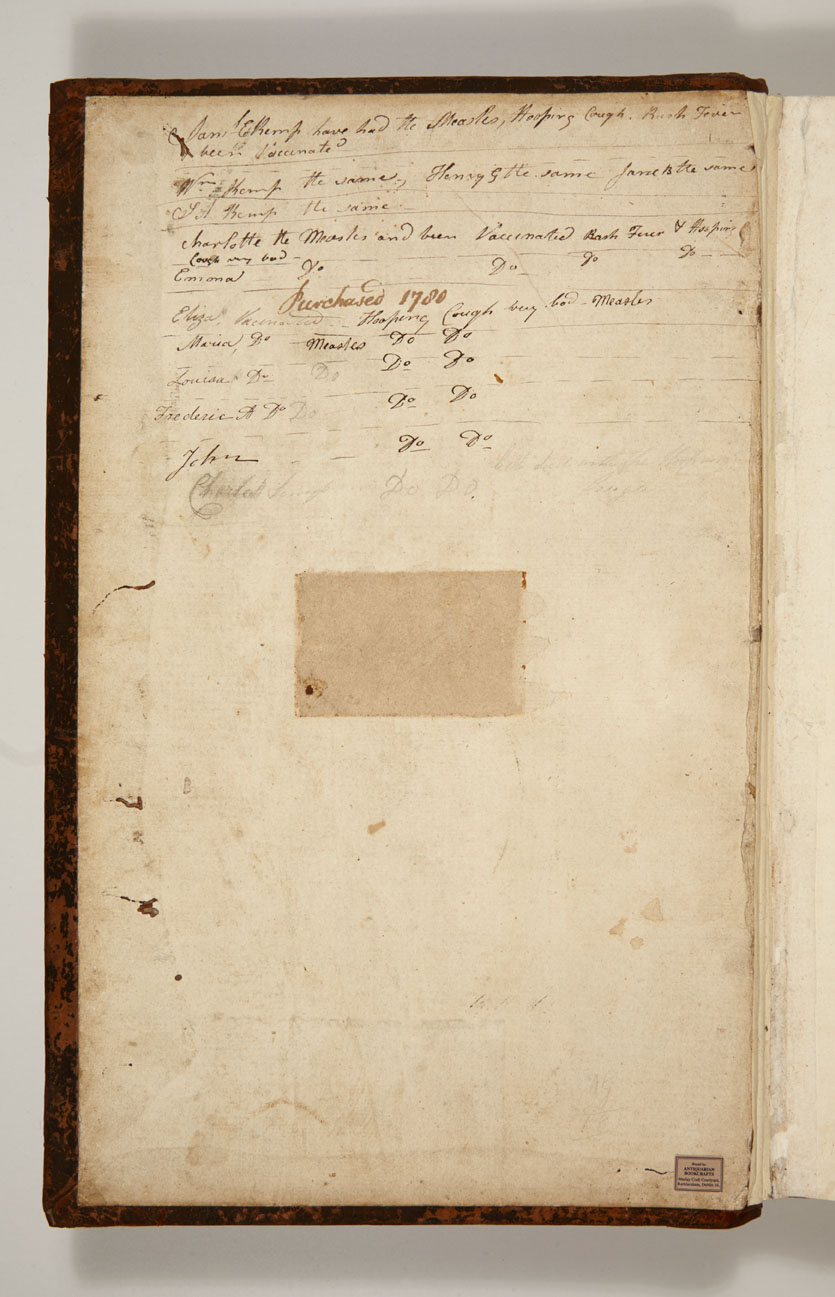 Saml E Kemp have had the Measles, Hooping Cough. Rash Fever
& been Vaccinated
Wm Kemp the same, Henry G the same Jane B the same
S A Kemp the same
Charlotte the Measles and been Vaccinated Rash Fever & Hooping
Cough very bad
Emma Do Do Do Do
Purchased 1780
Eliza Vaccinated Hooping Cough very bad - Measles
Maria, Do Measles Do Do
Louisa Do Do Do Do
Frederic A Do Do Do Do
John Do Do
Do Do
Bound by
ANTIQUARIAN
BOOKCRAFTS
Marlay Craft Courtyard,
Rathfarnham, Dublin 16.